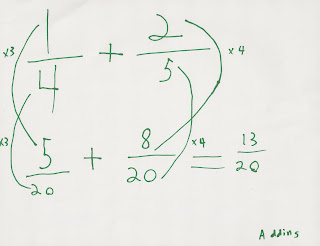 ×3 1/4 + 2/5 ×4
×3 5/20 + 8/20 ×4 = 13/20
Adding